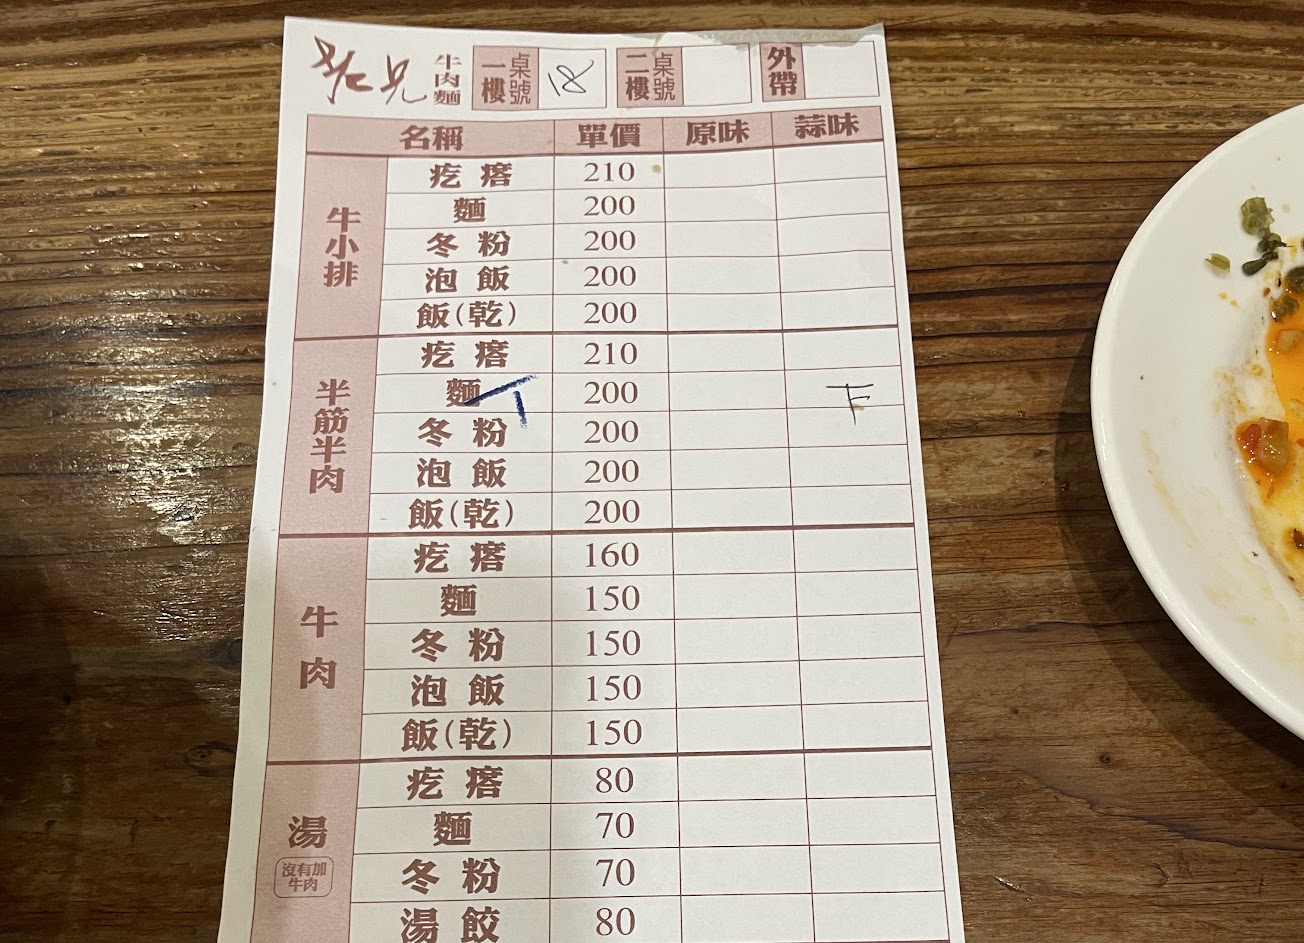 牛肉麵 一樓 桌號 18 二樓 桌號 外帶
名稱 單價 原味 蒜味
牛小排
疙瘩 210
麵 200
冬粉 200
泡飯 200
飯(乾) 200
半筋半肉
疙瘩 210
麵 200 下
冬粉 200
泡飯 200
飯(乾) 200
牛肉
疙瘩 160
麵 150
冬粉 150
泡飯 150
飯(乾) 150
湯
沒有加牛肉
疙瘩 80
麵 70
冬粉 70
湯餃 80